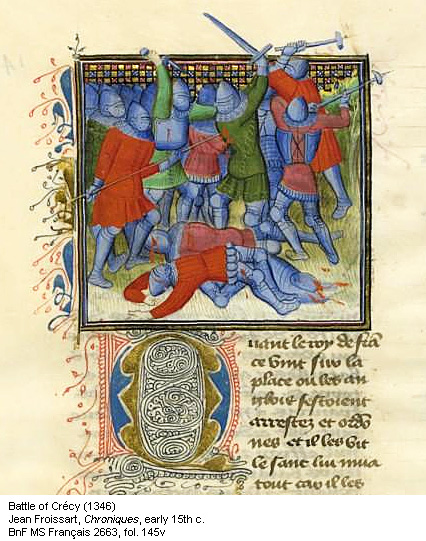 Quant le roy de frã
ce vint sur la
place ou les an
glois sestoient
arrestez et ordõ
nes et il les vit
le sanc lui mua
tout car il les
Battle of Crécy (1346)
Jean Froissart, Chroniques, early 15th c.
BnF MS Français 2663, fol. 145v